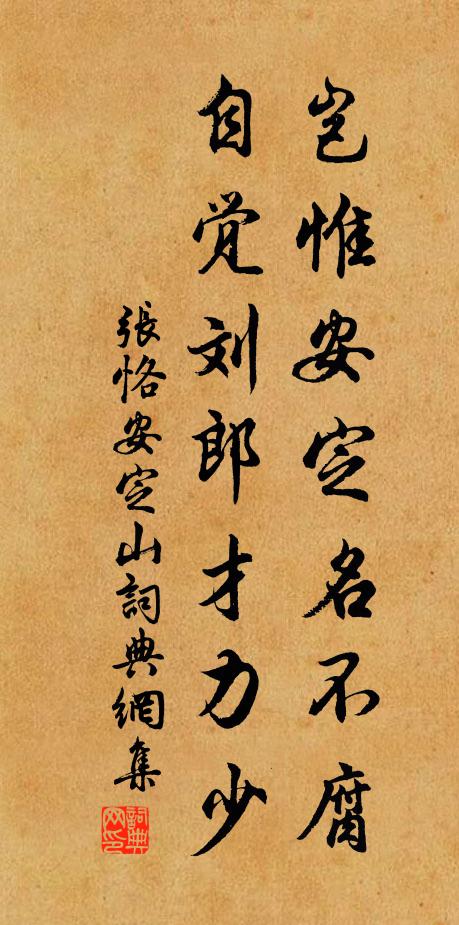 岂惟安定名不腐
自觉刘郎才力少
張恪安定山詞典網集
詞典网印